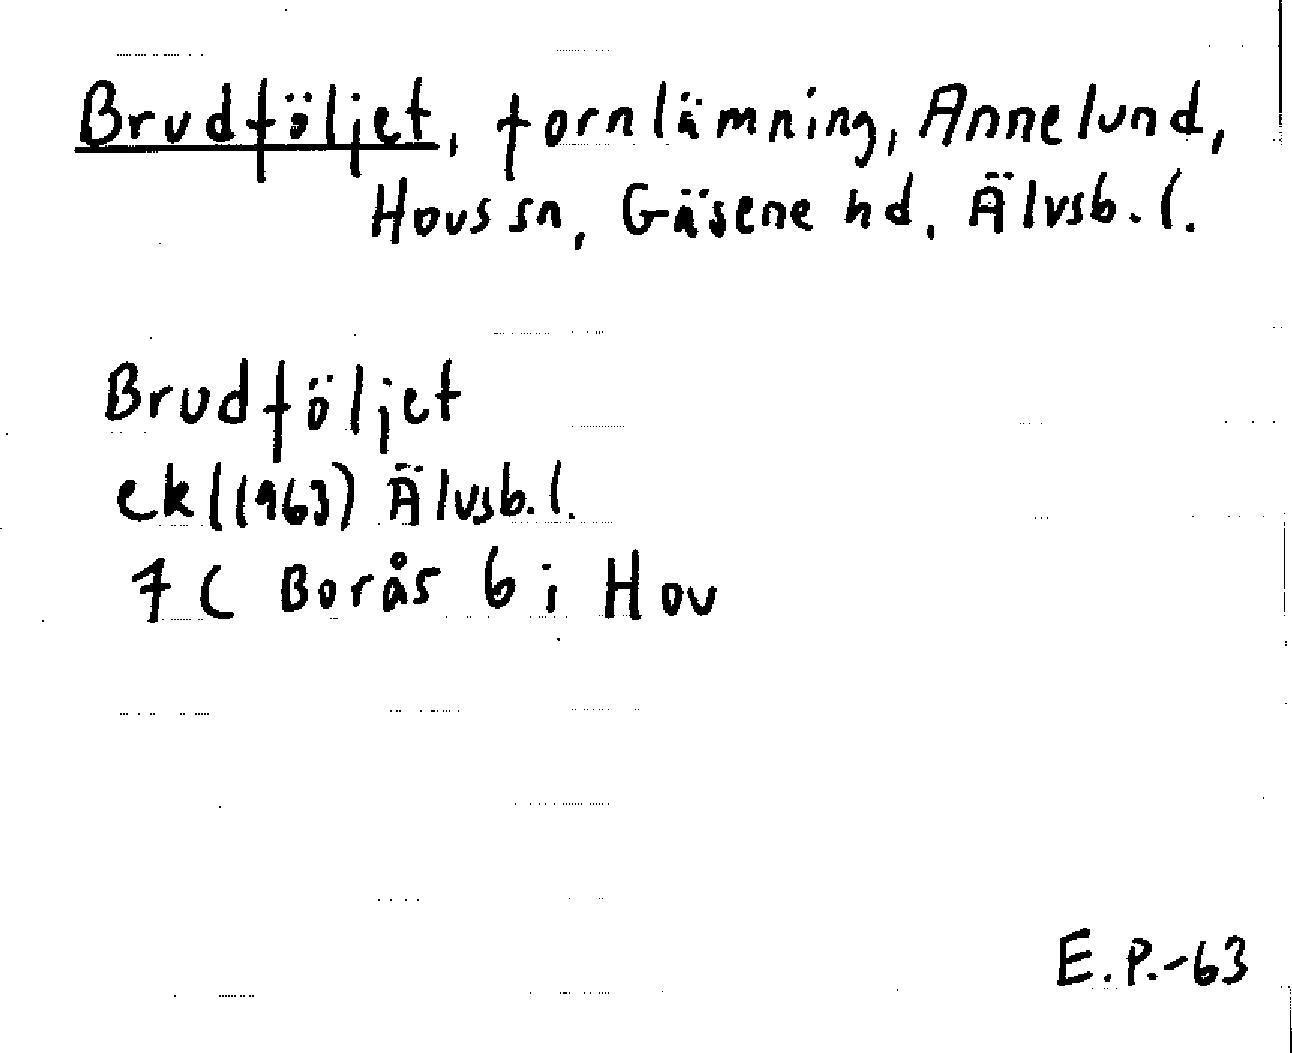 Brudföljet, fornlämning, Annelund,
Hovs sn, Gäsene hd, Älvsb. l.
Brudföljet
ekl (1963) Älvsb. l.
7 C Borås 6 i Hov
E.P.-63